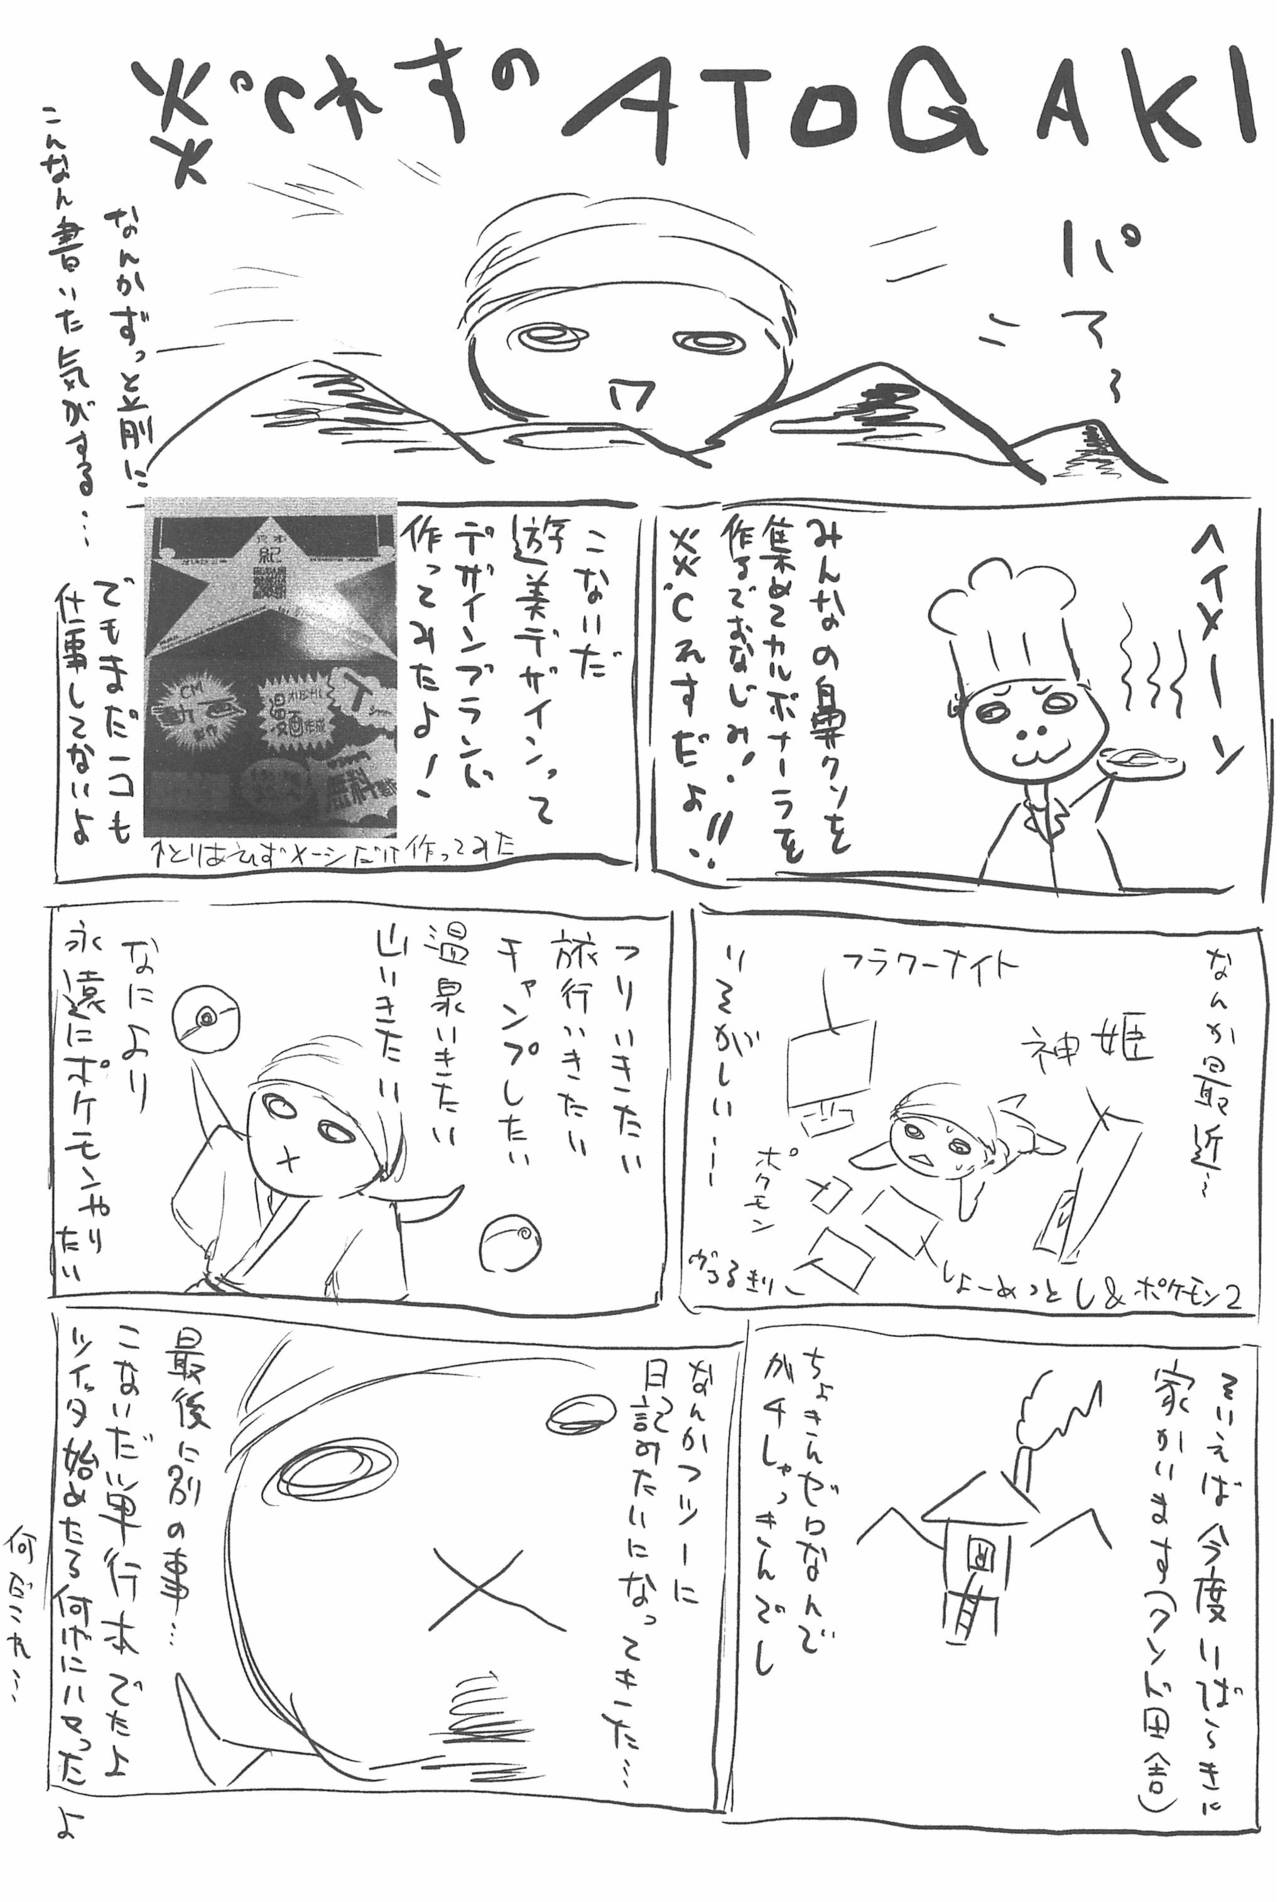 炎℃れすのATOGAKI
パァ〜
なんかずっと前に
こんなん書いた気がする…
ヘイメーン
みんなの鼻クソを
集めてカルボナーラを
作るでおなじみ!
炎℃れすだよ!!
こないだ
遊美デザインって
デザインブランド
作ってみたよ!
紀
CM
漫画作成
無料
↑とりあえずメーシだけ作ってみた
でもまだ一コも
仕事してないよ
なんか最近〜
神姫
フラワーナイト
ポケモン
しょーめっとし&ポケモン2
いそがしい〜
つりいきたい
旅行いきたい
キャンプしたい
温泉いきたい
山いきたい
なにより
永遠にポケモンやり
たい
そいえば今度いばらきに
家かいます(クンド田舎)
ちょきんゼロなんで
ガチしゃっきんでし
なんかフツーに
日記みたいになってきた…
最後に別の事…
こないだ単行本でたよ
ツイッタ始めたら何げにハマったよ
何だこれ…